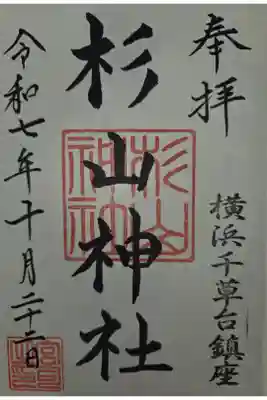 奉拝
横浜千草台鎮座
杉山神社
杉山神社
令和七年十月二十二日